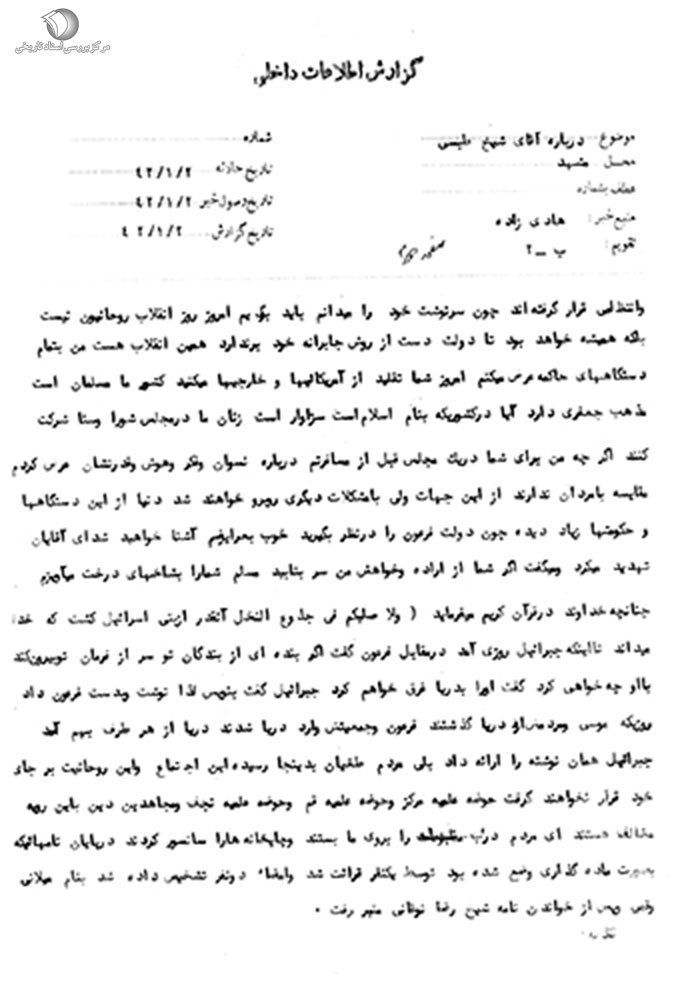 مرکز بررسی اسناد تاریخی
گزارش اطلاعات داخلی
موضوع درباره آقای شیخ طبسی
محل مشهد
عطف بشماره
منبع خبر: هادی زاده
تقویم: ب ــ ۲
شماره
تاریخ حادثه ۴۲/۱/۲
تاریخ وصول خبر ۴۲/۱/۲
تاریخ گزارش ۴۲/۱/۲
صفحه دوم
وانتظامی قرار گرفته اند چون سرنوشت خود را میدانم باید بگویم امروز روز انقلاب روحانیون نیست
بلکه همیشه خواهد بود تا دولت دست از روش جابرانه خود برندارد همین انقلاب هست من بتمام
دستگاههای حاکمه عرض میکنم امروز شما تقلید از آمریکائیها و خارجیها میکنید کشور ما مسلمان است
مذهب جعفری دارد آیا درکشوریکه بنام اسلام است سزاوار است زنان ما درمجلس شورا وسنا شرکت
کنند اگر چه من برای شما دریك مجلس قبل از مسافرتم درباره نسوان وفکر وهوش وقدرتشان عرض کردم
مقایسه بامردان ندارند از این جهات ولی بامشکلات دیگری روبرو خواهند شد دنیا از این دستگاهها
و حکومتها زیاد دیده چون دولت فرعون را درنظر بگیرید خوب بعرایضم آشنا خواهید شد ای آقایان
تهدید میکرد ومیگفت اگر شما از اراده وخواهش من سر بتابید مسلم شمارا بشاخهای درخت میآویزم
چنانچه خداوند درقرآن کریم میفرماید ( ولا صلبکم فی جذوع النخل آنقدر ازبنی اسرائیل کشت که خدا
میداند تااینکه جبرائیل روزی آمد درمقابل فرعون گفت اگر بنده ای از بندگان تو سر از فرمان توبیرون‌کند
بااو چه خواهی کرد گفت اورا بدریا غرق خواهم کرد جبرائیل گفت بنویس لذا نوشت وبدست فرعون داد
روزیکه موسی ومردمش از دریا گذشتند فرعون وجمعیتش وارد دریا شدند دریا از هر طرف بهم آمد
جبرائیل همان نوشته را ارائه داد بلی مردم طغیان بدینجا رسیده این اجتماع واین روحانیت بر جای
خود قرار نخواهند گرفت حوضه علمیه مرکز وحوضه علمیه قم وحوضه علمیه نجف ومجاهدین دین باین رویه
مخالف هستند ای مردم درب مطبوعات را بروی ما بستند وچاپخانه هارا سانسور کردند درپایان نامهائیکه
بصورت ماده گذاری وضع شده بود توسط یکنفر قرائت شد وامضاء دونفر تشخیص داده شد بنام میلانی
وقمی وپس از خواندن نامه شیخ رضا نوغانی منبر رفت .